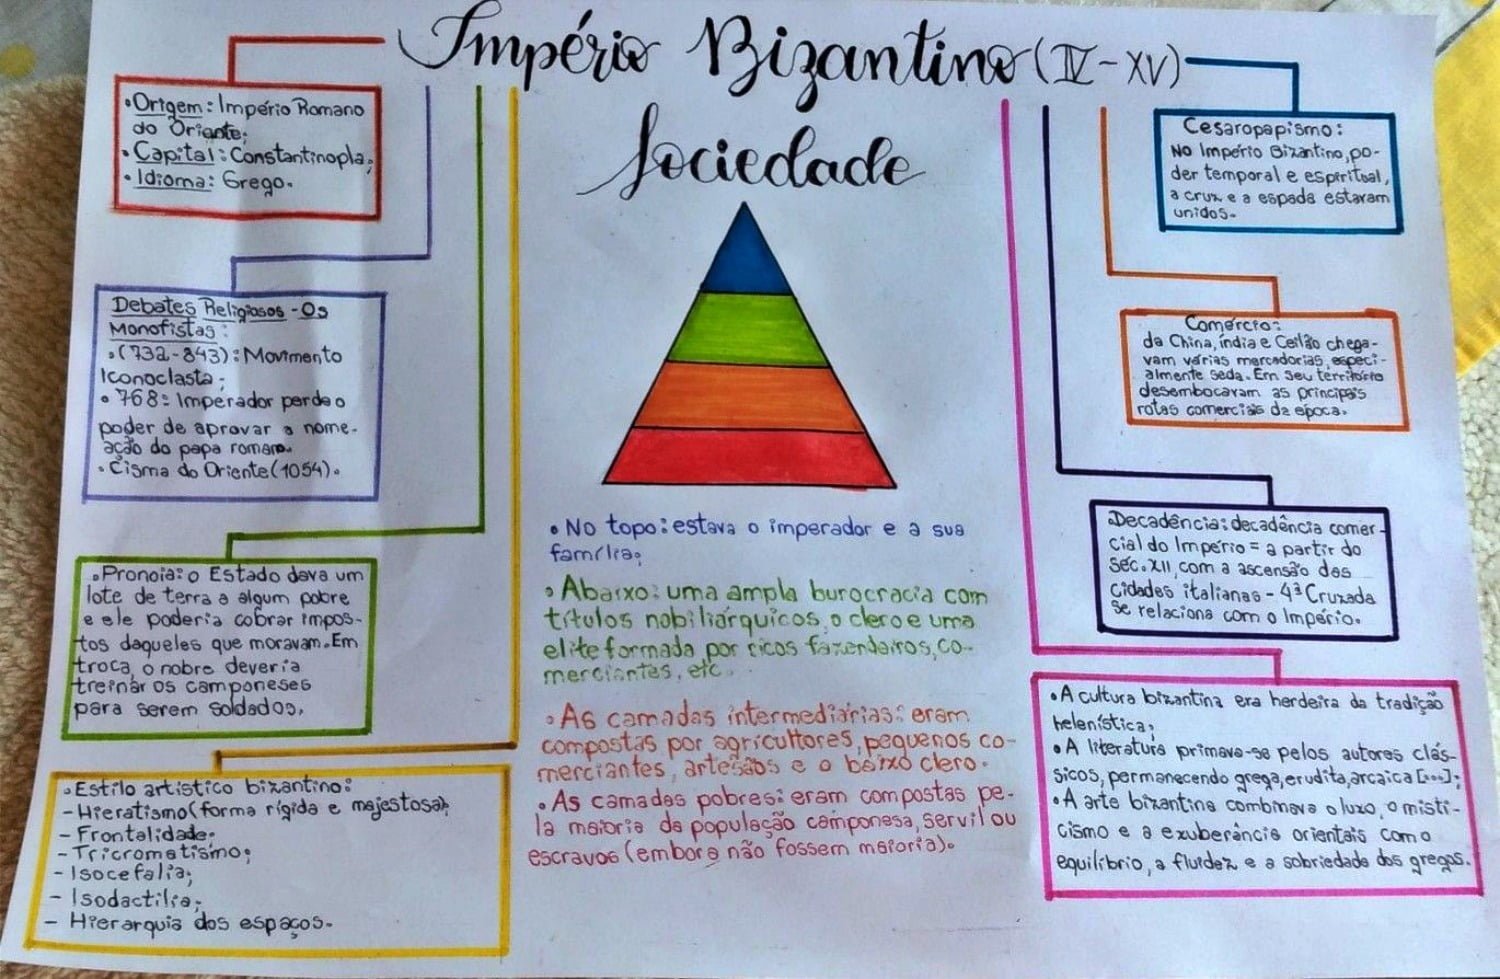 Império Bizantino (IV-XV)
Sociedade
•Origem: Império Romano
do Oriente;
•Capital: Constantinopla;
•Idioma: Grego.
Debates Religiosos - Os
Monofistas:
•(732-843): Movimento
Iconoclasta;
• 768: Imperador perde o
poder de aprovar a nome-
ação do papa romano.
•Cisma do Oriente (1054).
•Pronoia: o Estado dava um
lote de terra a algum pobre
e ele poderia cobrar impos-
tos daqueles que moravam. Em
troca, o nobre deveria
treinar os camponeses
para serem soldados.
•Estilo artístico bizantino:
- Hieratismo (forma rígida e majestosa);
- Frontalidade;
- Tricromatismo;
- Isocefalia;
- Isodactilia;
- Hierarquia dos espaços.
• No topo: estava o imperador e a sua
família;
• Abaixo: uma ampla burocracia com
títulos nobiliárquicos, o clero e uma
elite formada por ricos fazendeiros, co-
merciantes, etc.
• As camadas intermediárias: eram
compostas por agricultores, pequenos co-
merciantes, artesãos e o baixo clero.
• As camadas pobres: eram compostas pe-
la maioria da população camponesa, servil ou
escravos (embora não fossem maioria).
Cesaropapismo:
No Império Bizantino, po-
der temporal e espiritual,
a cruz e a espada estavam
unidos.
Comércio:
da China, índia e Ceilão chega-
vam várias mercadorias, especi-
almente seda. Em seu território
desembocavam as principais
rotas comerciais da época.
•Decadência: decadência comer-
cial do Império = a partir do
séc. XII, com a ascensão das
cidades italianas - 4ª Cruzada
se relaciona com o Império.
•A cultura bizantina era herdeira da tradição
helenística;
•A literatura primava-se pelos autores clás-
sicos, permanecendo grega, erudita, arcaica [...];
•A arte bizantina combinava o luxo, o misti-
cismo e a exuberância orientais com o
equilíbrio, a fluidez e a sobriedade dos gregos.